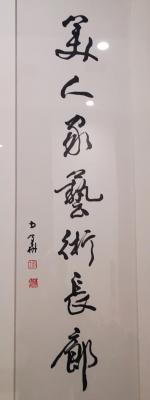 美人家藝術長廊